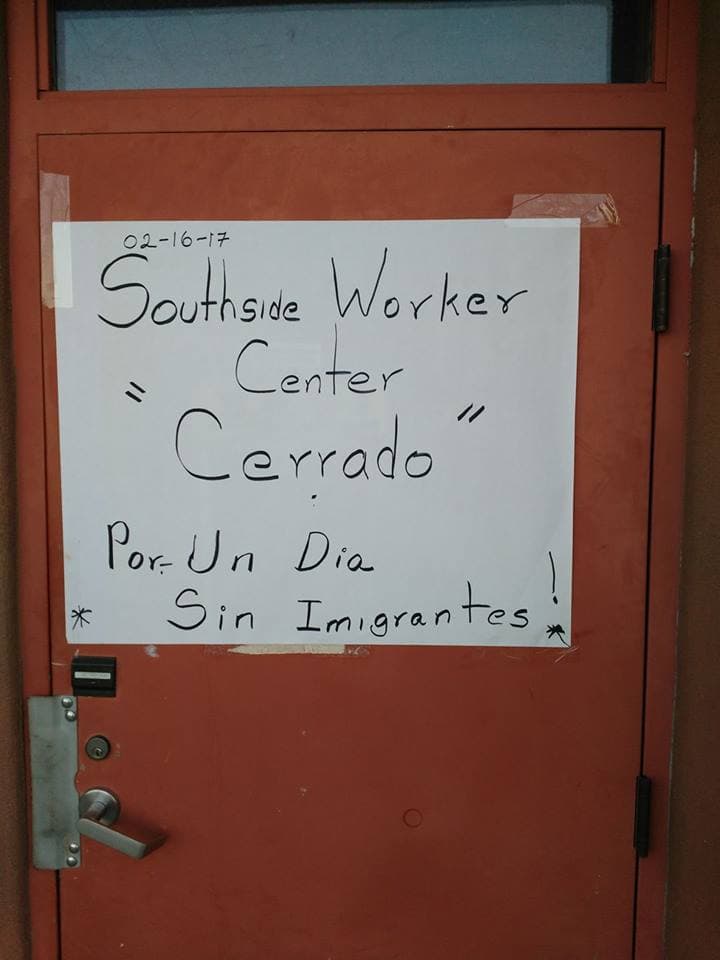 02-16-17
Southside Worker
Center
"Cerrado"
Por Un Dia
* Sin Imigrantes! *